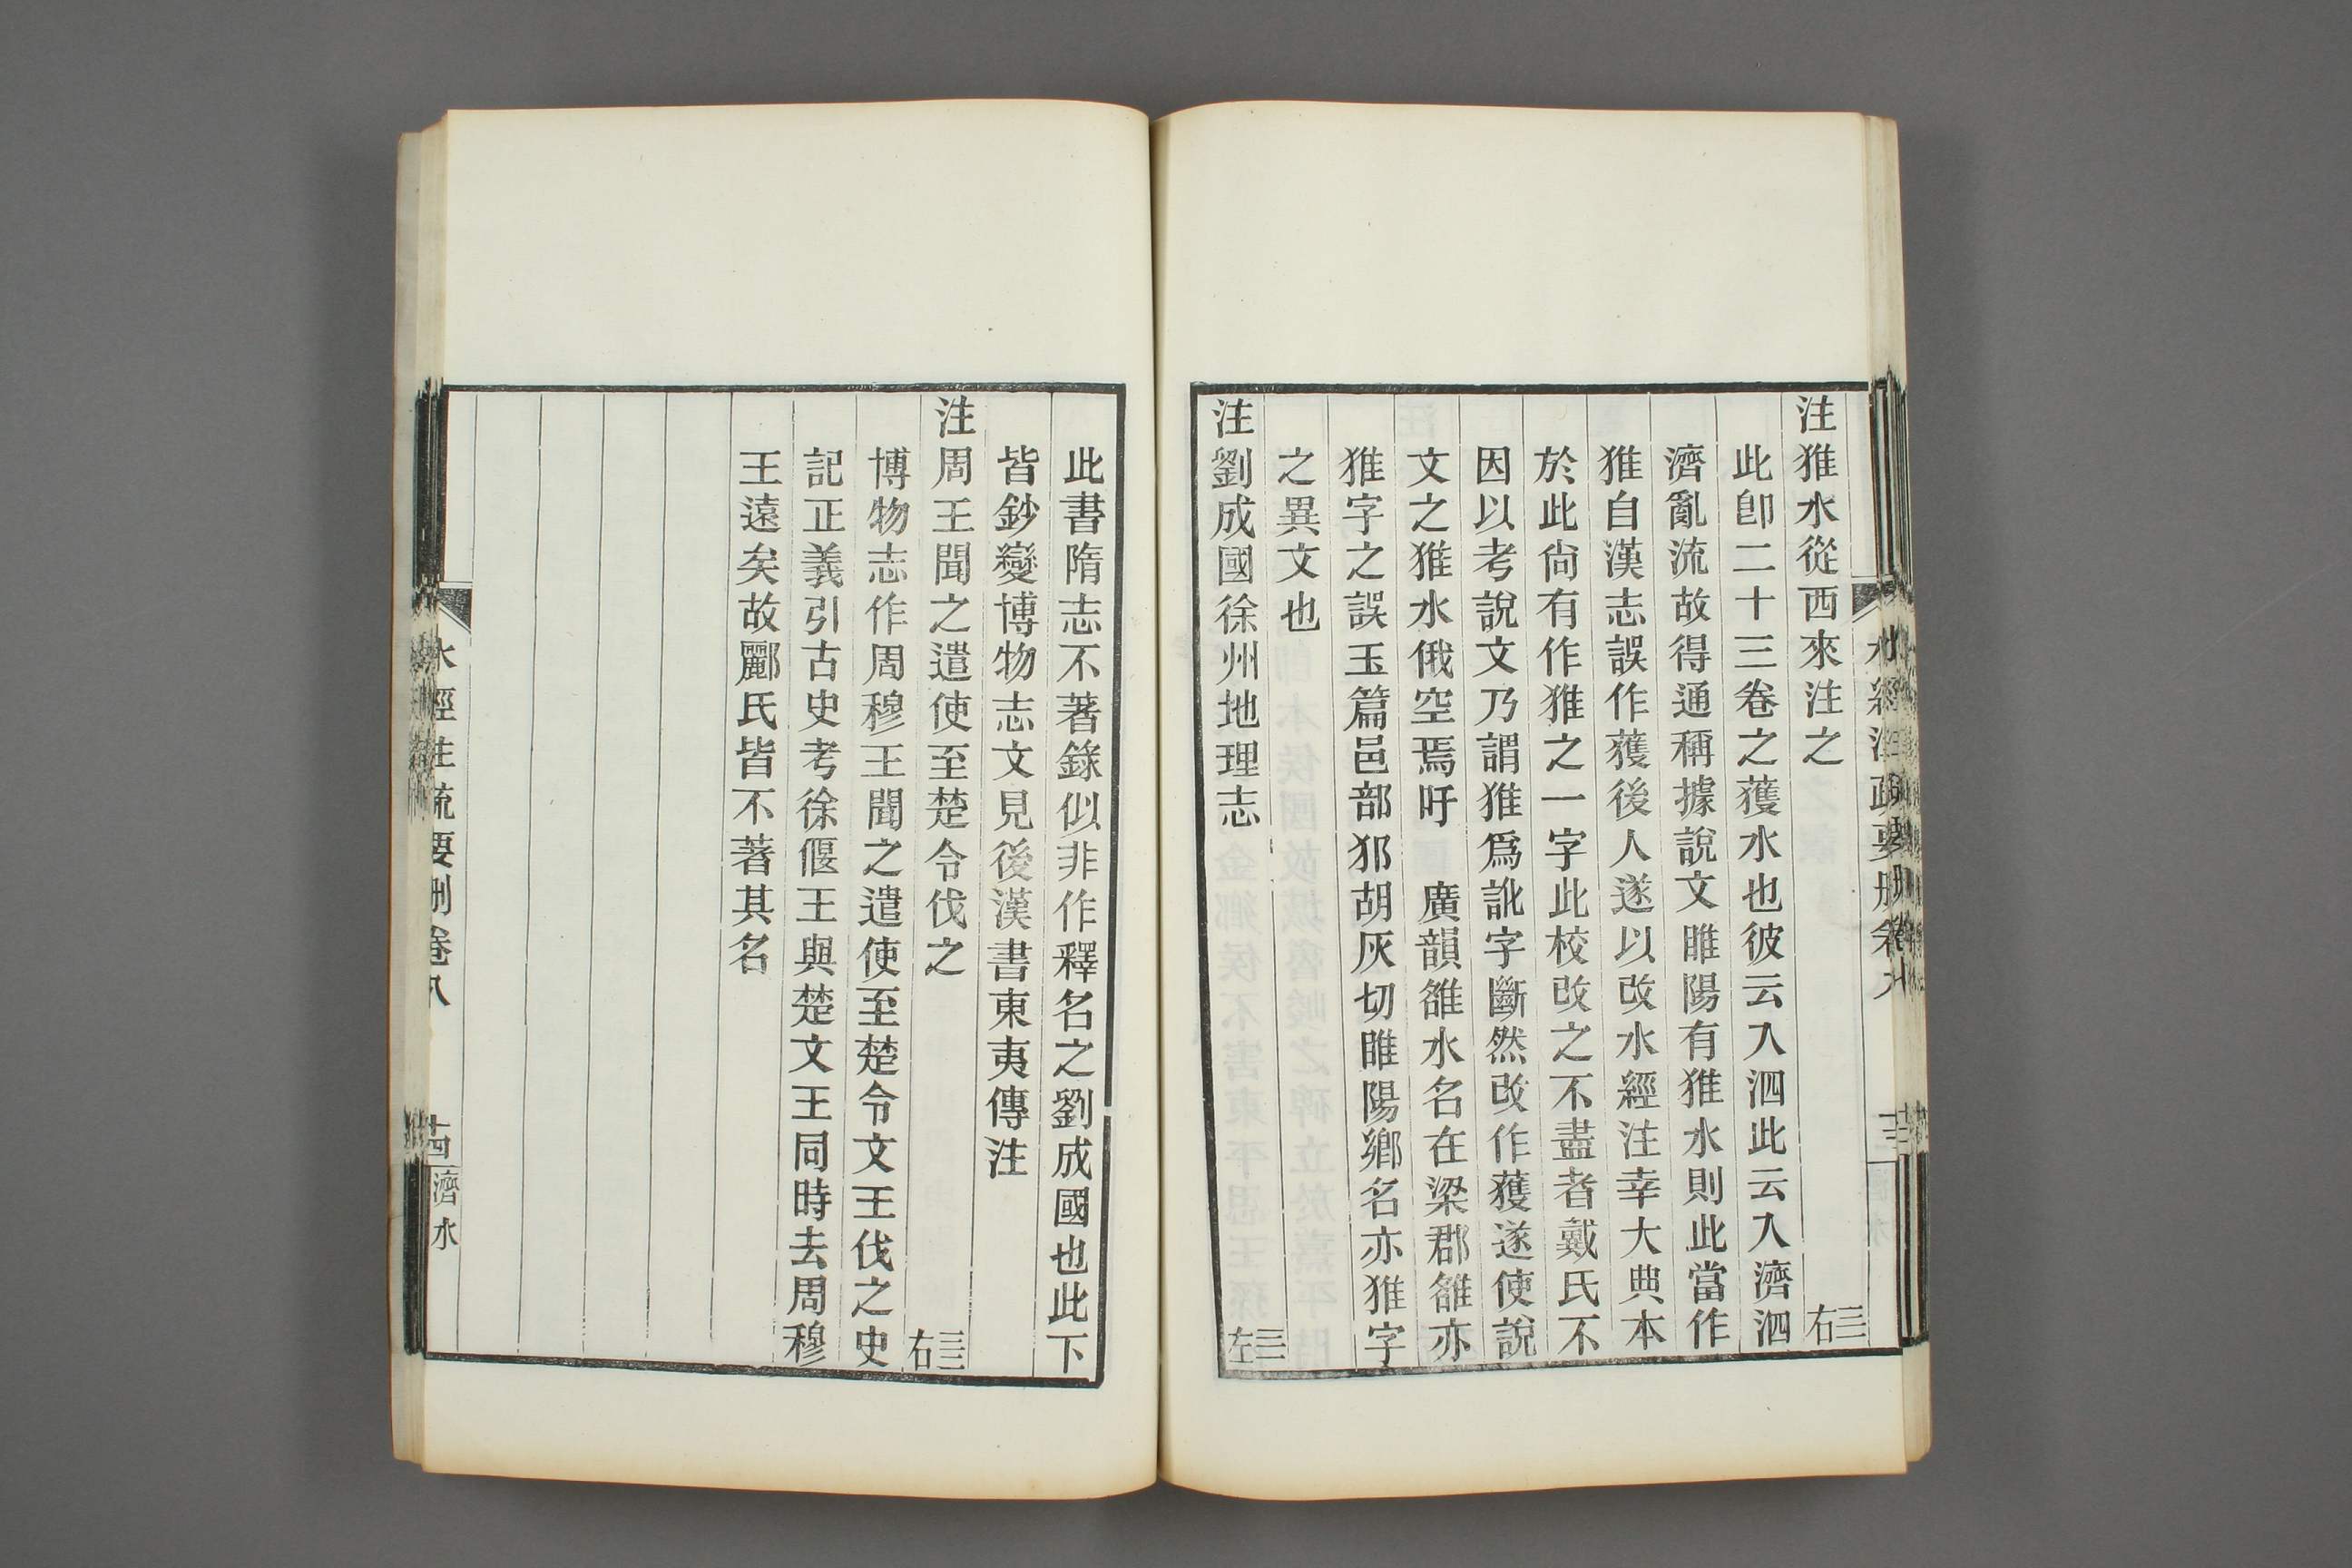 注獾水從西來注之 三三右
此卽二十三卷之獲水也彼云入泗此云入濟泗
濟亂流故得通稱據說文睢陽有獾水則此當作
獾自漢志誤作獲後人遂以改水經注幸大典本
於此尙有作獾之一字此校改之不盡者戴氏不
因以考說文乃謂獾爲訛字斷然改作獲遂使說
文之獾水俄空焉吁 廣韻雒水名在梁郡雒亦
獾字之誤玉篇邑部𨚗胡灰切睢陽鄉名亦獾字
之異文也
注劉成國徐州地理志 三三左
此書隋志不著錄似非作釋名之劉成國也此下
皆鈔變博物志文見後漢書東夷傳注
注周王聞之遣使至楚令伐之 三三右
博物志作周穆王聞之遣使至楚令文王伐之史
記正義引古史考徐偃王與楚文王同時去周穆
王遠矣故酈氏皆不著其名
水經注疏要刪卷八 十四 濟水